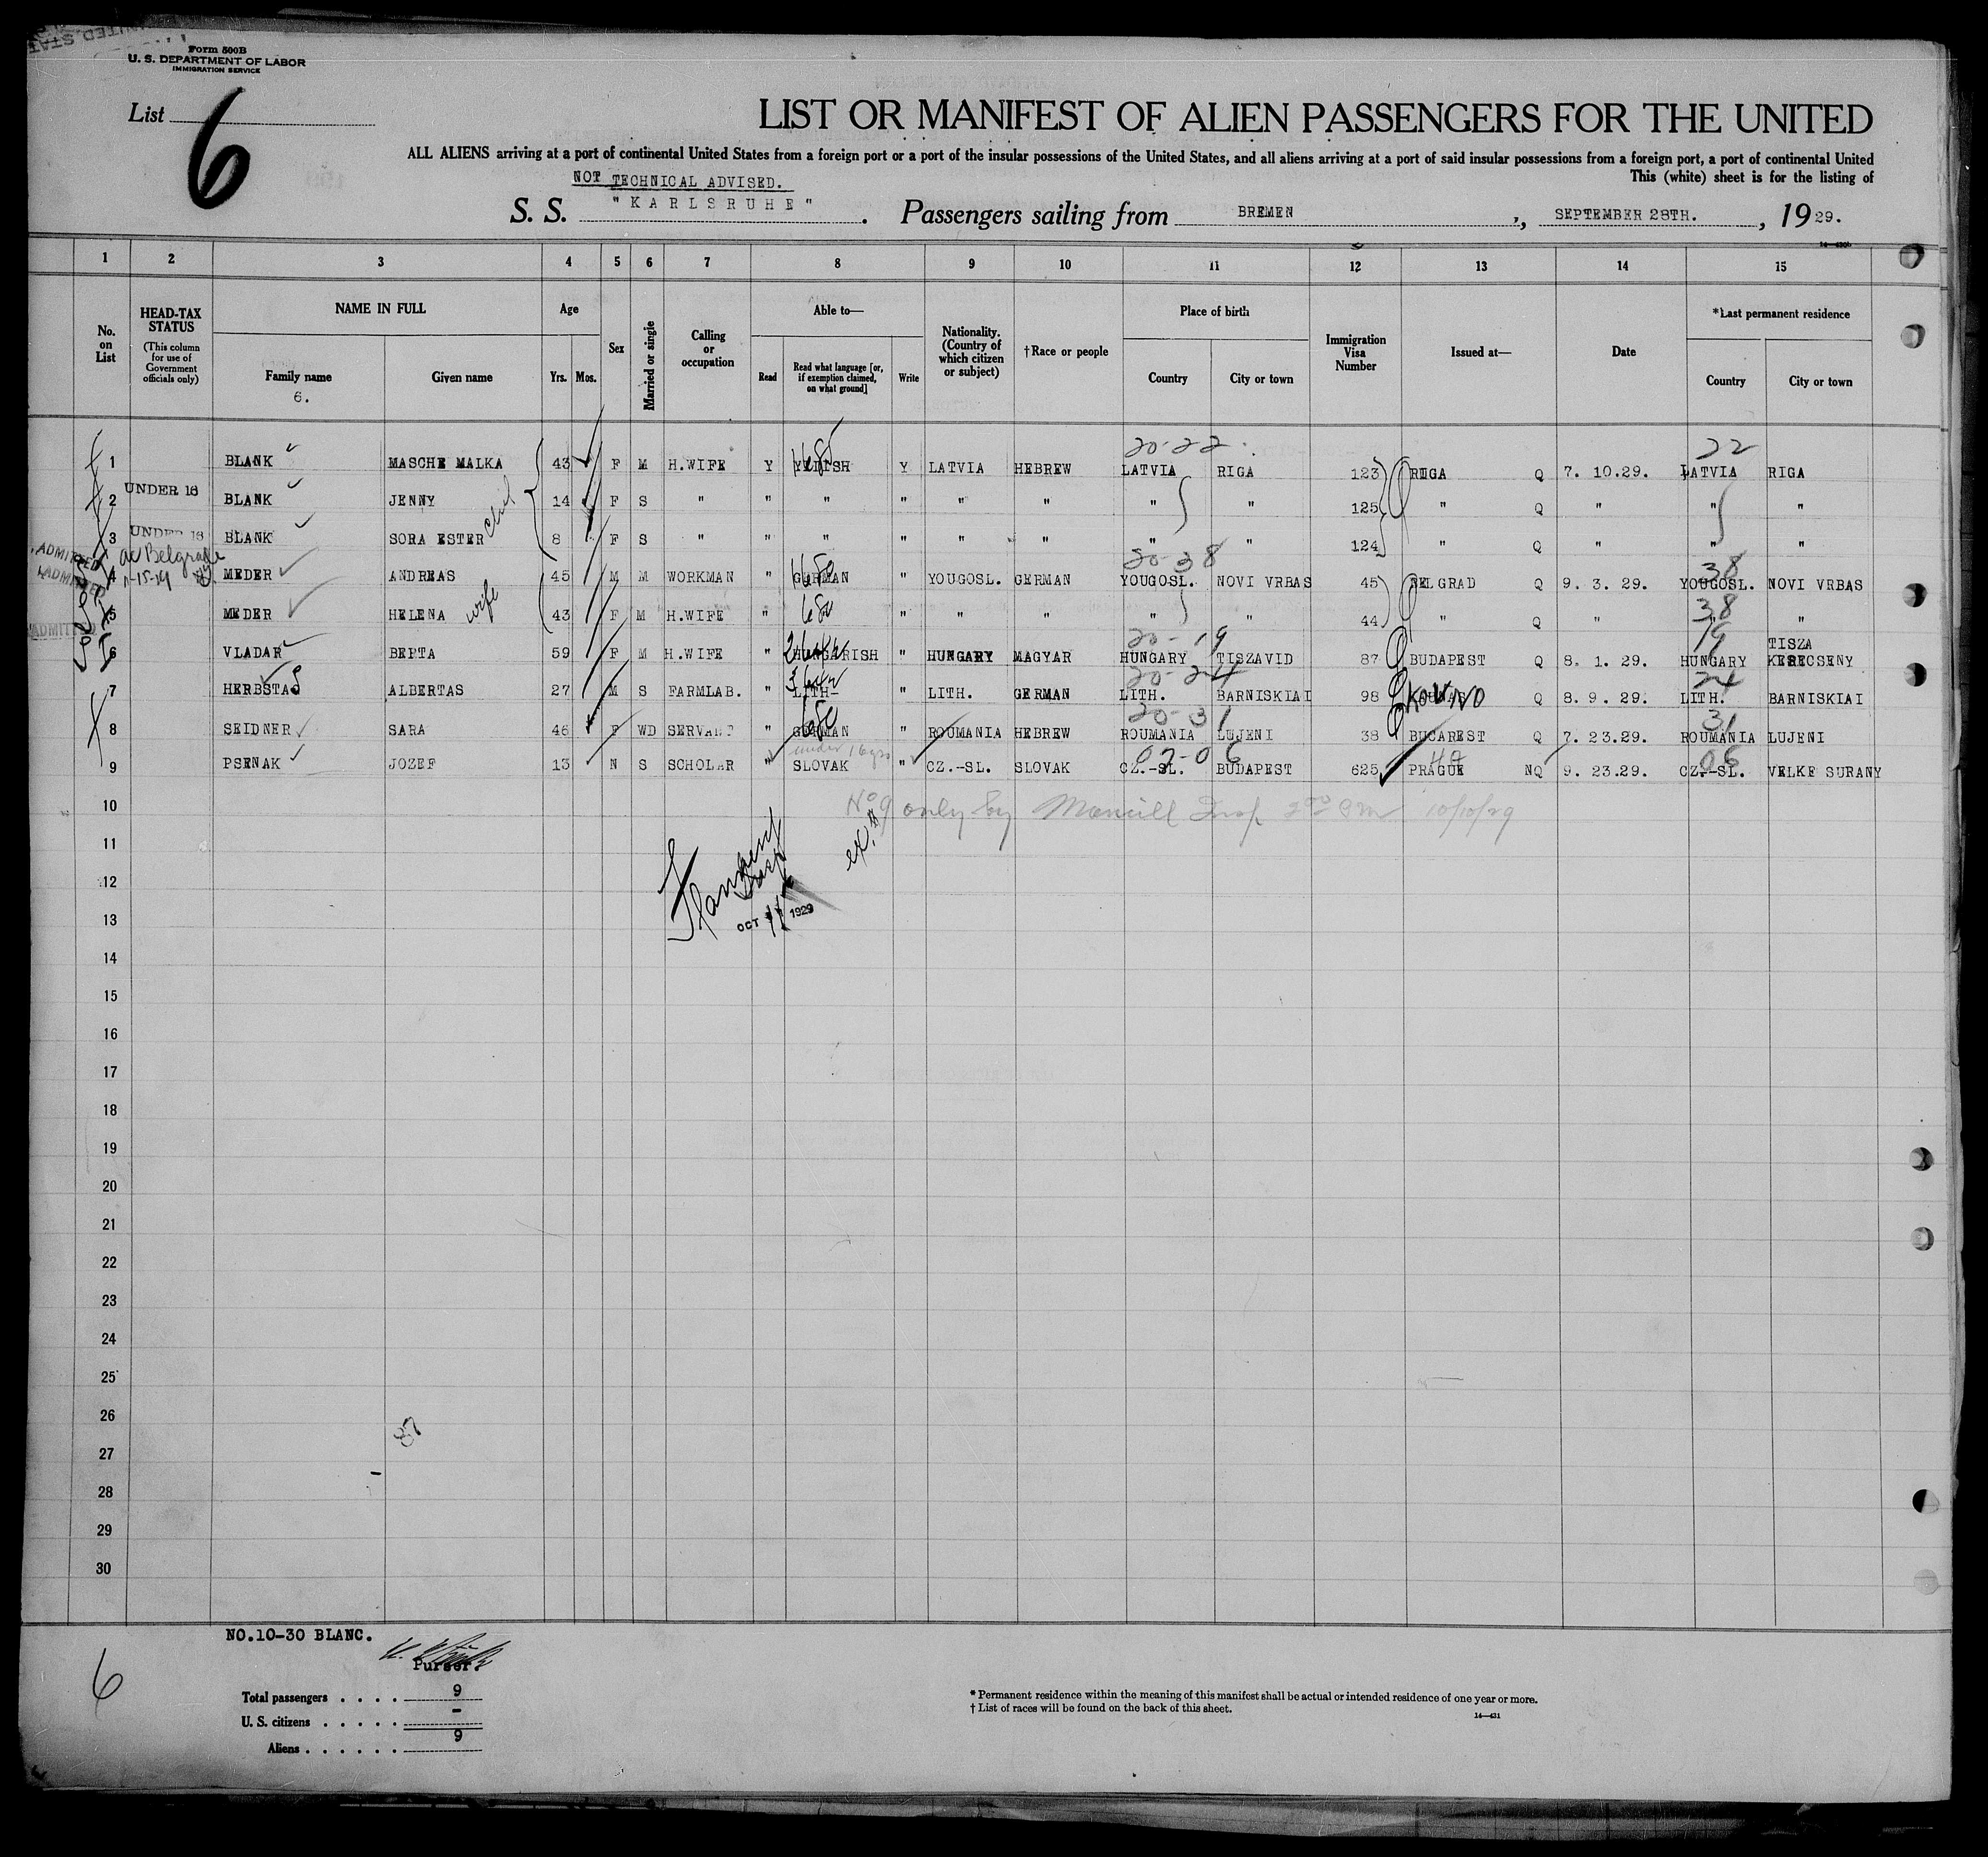 Form 500B
U. S. DEPARTMENT OF LABOR
IMMIGRATION SERVICE
List 6
LIST OR MANIFEST OF ALIEN PASSENGERS FOR THE UNITED
ALL ALIENS arriving at a port of continental United States from a foreign port or a port of the insular possessions of the United States, and all aliens arriving at a port of said insular possessions from a foreign port, a port of continental United
NOT TECHNICAL ADVISED.
This (white) sheet is for the listing of
S. S. "KARLSRUHE". Passengers sailing from BREMEN, SEPTEMBER 28TH., 1929.
1 2 3 4 5 6 7 8 9 10 11 12 13 14 15
No. on List
HEAD-TAX STATUS
(This column for use of Government officials only)
NAME IN FULL
Family name
6.
Given name
Age
Yrs. Mos.
Sex
Married or single
Calling or occupation
Able to—
Read
Read what language [or, if exemption claimed, on what ground]
Write
Nationality. (Country of which citizen or subject)
†Race or people
Place of birth
Country
City or town
Immigration Visa Number
Issued at—
Date
*Last permanent residence
Country
City or town
20-22 22
1 BLANK MASCHE MALKA 43 F M H.WIFE Y YIDDISH Y LATVIA HEBREW LATVIA RIGA 123 RIGA Q 7. 10.29. LATVIA RIGA
2 UNDER 16 BLANK JENNY 14 F S " " " " " " " " 125 " Q " " "
3 UNDER 16 BLANK SORA ESTER 8 F S " " " " " " " " 124 " Q " " "
ADMITTED ac Belgrade
20-38 38
4 MEDER ANDREAS 45 M M WORKMAN " GERMAN " YOUGOSL. GERMAN YOUGOSL. NOVI VRBAS 45 BELGRAD Q 9. 3. 29. YOUGOSL. NOVI VRBAS
ADMITTED
5 MEDER HELENA wife 43 F M H.WIFE " 680 " " " " " 44 " Q " 38 "
ADMITTED
20-19 19
6 VLADAR BERTA 59 F M H.WIFE " HUNGARISH " HUNGARY MAGYAR HUNGARY TISZAVID 87 BUDAPEST Q 8. 1. 29. HUNGARY TISZA KERECSENY
20-24 24
7 HERBSTAS ALBERTAS 27 M S FARMLAB. " LITH- " LITH. GERMAN LITH. BARNISKIAI 98 KOVNO Q 8. 9. 29. LITH. BARNISKIAI
20-31 31
8 SEIDNER SARA 46 F WD SERVANT " GERMAN " ROUMANIA HEBREW ROUMANIA LUJENI 38 BUCAREST Q 7. 23.29. ROUMANIA LUJENI
under 16 yrs 07-06 06
9 PSENAK JOZEF 13 N S SCHOLAR " SLOVAK " CZ.-SL. SLOVAK CZ.-SL. BUDAPEST 625 PRAGUE NQ 9. 23.29. CZ.-SL. VELKE SURANY
10 No 9 only by Insp 10/10/29
11
12
OCT 1929
13
14
15
16
17
18
19
20
21
22
23
24
25
26
27
28
29
30
NO.10-30 BLANC.
6
Purser.
Total passengers . . . . 9
U. S. citizens . . . . . -
Aliens . . . . . . 9
* Permanent residence within the meaning of this manifest shall be actual or intended residence of one year or more.
† List of races will be found on the back of this sheet.
14—431